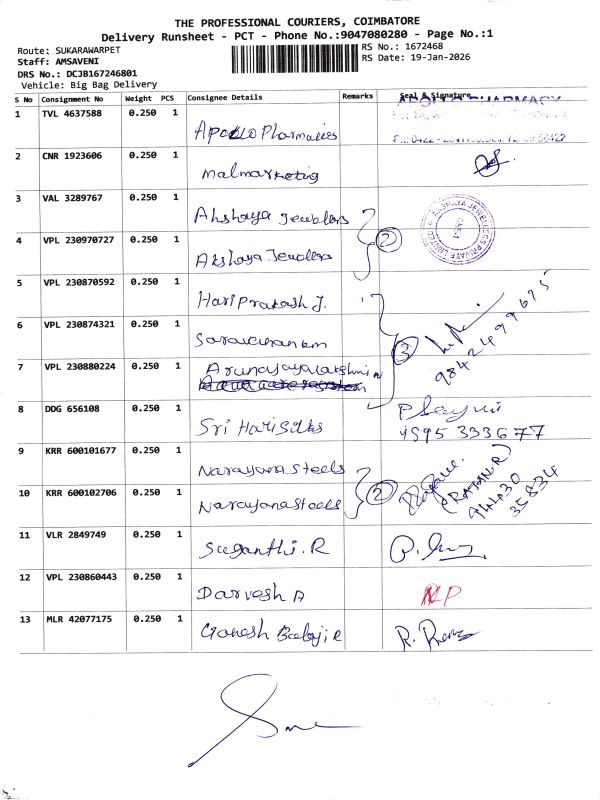 THE PROFESSIONAL COURIERS, COIMBATORE
Delivery Runsheet - PCT - Phone No.:9047080280 - Page No.:1
Route: SUKARAWARPET
RS No.: 1672468
Staff: AMSAVENI
RS Date: 19-Jan-2026
DRS No.: DCJB167246801
Vehicle: Big Bag Delivery
S No Consignment No Weight PCS Consignee Details Remarks Seal & Signature
1 TVL 4637588 0.250 1 Apollo Pharmacies
2 CNR 1923606 0.250 1 Malmarketing
3 VAL 3289767 0.250 1 Akshaya Jewellers
2
4 VPL 230970727 0.250 1 Akshaya Jewellers
5 VPL 230870592 0.250 1 Hari Prakash J.
6 VPL 230874321 0.250 1
3
9842499675
7 VPL 230880224 0.250 1
8 DDG 656108 0.250 1 Sri Hari Silks
9 KRR 600101677 0.250 1 Narayana Steels
2
(RATAN.R)
94430
35834
10 KRR 600102706 0.250 1 Narayana Steels
11 VLR 2849749 0.250 1 Suganthi. R
12 VPL 230860443 0.250 1 Darvesh A
13 MLR 42077175 0.250 1 Ganesh Balaji R